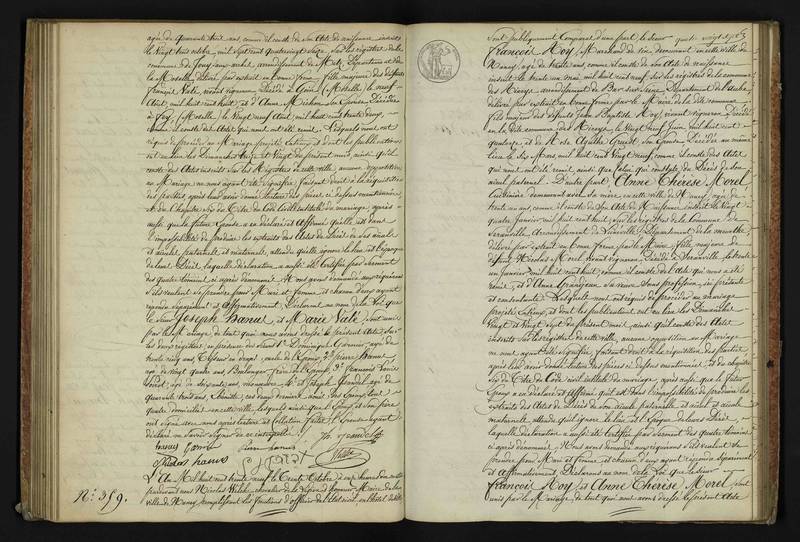 agé de quarante trois ans, comme il conste de son acte de naissance inscrit
le vingt trois octobre, mil sept cent quatre vingt seize, sur les registres de la
commune de Jouy-aux-arches, arrondissement de Metz, Département de
la Moselle, délivré par extrait en bonne forme, fille majeure des défunts
François Viste, vivant vigneron, décédé à (Moselle) le neuf
Août, mil huit cent huit, et d'Anne Michon, son Épouse, décédée
à (Moselle) le vingt neuf Août mil huit cent trente deux,
comme il conste des Actes qui nous ont été remis. Lesquels nous ont
requis de procéder au Mariage projeté entr'eux, et dont les publications
ont eu lieu les Dimanches et vingt du présent mois, ainsi qu'il
conste des Actes inscrits sur les Registres de cette ville, aucune opposition
au Mariage ne nous ayant été signifiée, faisant droit à la réquisition
des parties, après leur avoir donné lecture des pièces ci dessus mentionnées
et du Chapitre six du Titre du Code Civil intitulé du mariage, après
aussi que la future Épouse a eu déclaré et Affirmé qu'elle est dans
l'impossibilité de produire les extraits des Actes de Décès de ses aïeuls
et aïeules paternels et maternels, attendu qu'elle ignore le lieu et l'époque
de leurs Décès, laquelle déclaration a aussi été certifiée par serment
des quatre témoins ci après dénommés. Nous avons demandé aux requérans
s'ils veulent se prendre pour Mari et femme, et chacun d'eux ayant
répondu séparément et Affirmativement, Déclarons au nom de la Loi que
le Sieur Joseph et Marie sont unis
par le Mariage, de tout quoi nous avons dressé le présent Acte, sur
les deux registres, en présence des Sieurs 1° Dominique Garnier, agé de
trente cinq ans, 2° pierre
agé de vingt quatre ans, Boulanger, frère de l'Époux, 3° françois Louis
agé de soixante ans, manœuvre, 4° et Joseph agé de
quarante trois ans, Ébéniste, ces deux derniers amis des Époux, tous
quatre domiciliés en cette ville, lesquels ainsi que l'Époux et son père
ont signé avec nous après lecture et Collation faites, l'Épouse ayant
déclaré ne savoir signer de ce interpellée.
N° 359.
L'An Mil huit cent trente neuf, le trente Octobre, à onze heures du matin
pardevant nous Nicolas chevalier de la légion d'honneur, Maire de la
ville de Nancy, remplissant les fonctions d'officier de l'état civil, en l'hôtel de Ville
Sont publiquement Comparus d'une part, le Sieur
François Roy, Marchand de vin, demeurant en cette ville de
Nancy, agé de trente ans, comme il conste de son Acte de naissance
inscrit le trente un mai, mil huit cent neuf, sur les registres de la commune
des Riceys, arrondissement de Bar sur Seine, Département de l'Aube
délivré par extrait en bonne forme par le Maire de la dite commune,
fils majeur des défunts Jean Baptiste Roy, vivant vigneron, Décédé
en la dite commune des Riceys, le vingt neuf Juin mil huit cent
quatorze, et de Rose Agathe son Épouse, Décédée au même
lieu le dix Mars, mil huit cent vingt neuf, comme il conste des Actes
qui nous ont été remis, ainsi que celui qui constate le Décès de son
aïeul paternel. D'autre part, Anne Thérèse Morel,
Couturière demeurant avec sa mère en cette ville de Nancy, agée de
trente un ans, comme il conste de son Acte de Naissance inscrit le vingt
quatre Janvier mil huit cent huit, sur les registres de la Commune de
Arrondissement de Lunéville, Département de la meurthe
délivré par extrait en bonne forme par le Maire, fille majeure de
défunt Nicolas Morel, vivant vigneron, Décédé le trente
un janvier mil huit cent huit, comme il conste de l'acte qui nous a été
remis, et d'Anne sa veuve, sans profession, ici présente
et consentante. Lesquels nous ont requis de procéder au mariage
projeté entr'eux, et dont les publications ont eu lieu les Dimanches
vingt et vingt sept du présent mois, ainsi qu'il conste des Actes
inscrits sur les registres de cette ville, aucune opposition au Mariage
ne nous ayant été signifiée, faisant droit à la réquisition des parties
après leur avoir donné lecture des pièces ci dessus mentionnées et du chapitre
six du Titre du Code civil intitulé du mariage, après aussi que le futur
Époux a eu déclaré et Affirmé, qu'il est dans l'impossibilité de produire les
extraits des Actes de Décès de son aïeule paternelle, et aïeul et aïeule
maternels, attendu qu'il ignore le lieu et l'époque de leurs Décès,
laquelle déclaration a aussi été Certifiée par serment des quatre témoins
ci après dénommés. Nous avons demandé aux requérans s'ils veulent se
prendre pour Mari et femme, et chacun d'eux ayant répondu séparément
et Affirmativement, Déclarons au nom de la Loi que le Sieur
François Roy, et Anne Thérèse Morel, sont
unis par le Mariage, de tout quoi nous avons dressé le présent Acte